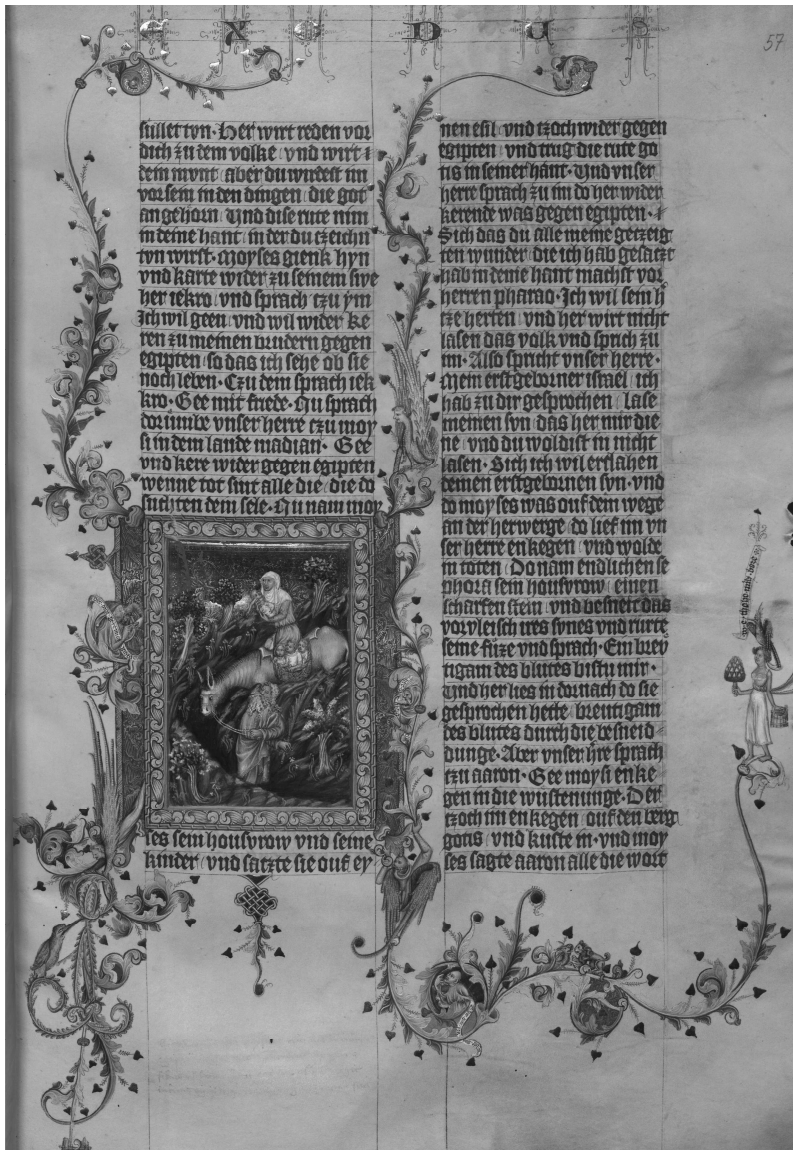 Exodus
57
sullet tvn · Her wirt reden vor
dich zu dem volke vnd wirt
dem mvnt aber du wirdest im
vor sein in den dingen die got
an gehorn Vnd dise rute nim
in deine hant in der du tzeichn
tvn wirst · moyses gienk hyn
vnd karte wider zu seinem swe
her iekro vnd sprach tzu ym
Ich wil geen vnd wil wider ke
ren zu meinen brudern gegen
egipten so das ich sehe ob sie
noch leben · Czu dem sprach iek
kro · Gee mit frede · Nu sprach
dor umbe vnser herre tzu moy
si in dem lande madian · Gee
vnd kere wider gegen egipten
wenne tot sint alle die die do
suchten dein sele · Nu nam moy
ses sein housvrow vnd seine
kinder vnd satzte sie ouf ey
nen esil vnd tzoch wider gegen
egipten vnd trug die rute go
tis in seiner hant · Vnd vnser
herre sprach zu im do her wider
kerende was gegen egipten ·
Sich das du alle meine getzeig
ten wunder die ich hab gesatzt
hab in deine hant machst vor
herren pharao · Ich wil sein h
tze herten vnd her wirt nicht
lasen das volk vnd sprich zu
im · Also spricht vnser herre ·
mein erstgeborner israel ich
hab zu dir gesprochen lase
meinen svn das her mir die
ne vnd du woldist in nicht
lasen · Sich ich wil erslahen
deinen erstgebornen svn · vnd
do moyses was ouf dem wege
an der herwerge do lief im vn
ser herre enkegen vnd wolde
in toten Do nam endlichen se
phora sein housvrow einen
scharfen stein vnd besneit das
vorvleisch ires svnes vnd rurte
seine füze vnd sprach · Ein brev
tigam des blutes bistu mir ·
Vnd her lies in dornach do sie
gesprochen hette breutigam
des blutes durch die besneid
dunge · Aber vnser hre sprach
tzu aaron · Gee moysi enke
gen in die wustenunge · Der
tzoch im enkegen ouf den berg
gotis vnd kuste in · vnd moy
ses sagte aaron alle die wort